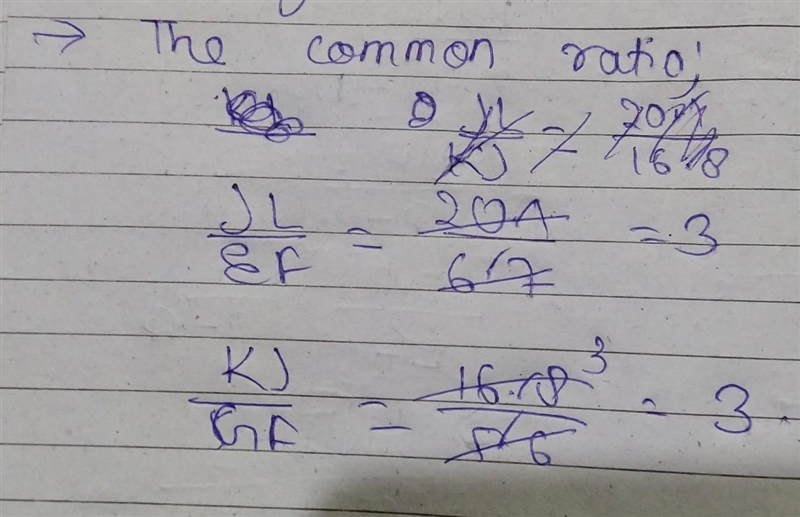 → The common ratio;
JL/KJ = 20.1/16.8
JL/EF = 20.1/6.7 = 3
KJ/GF = 16.8/5.6 3 = 3.